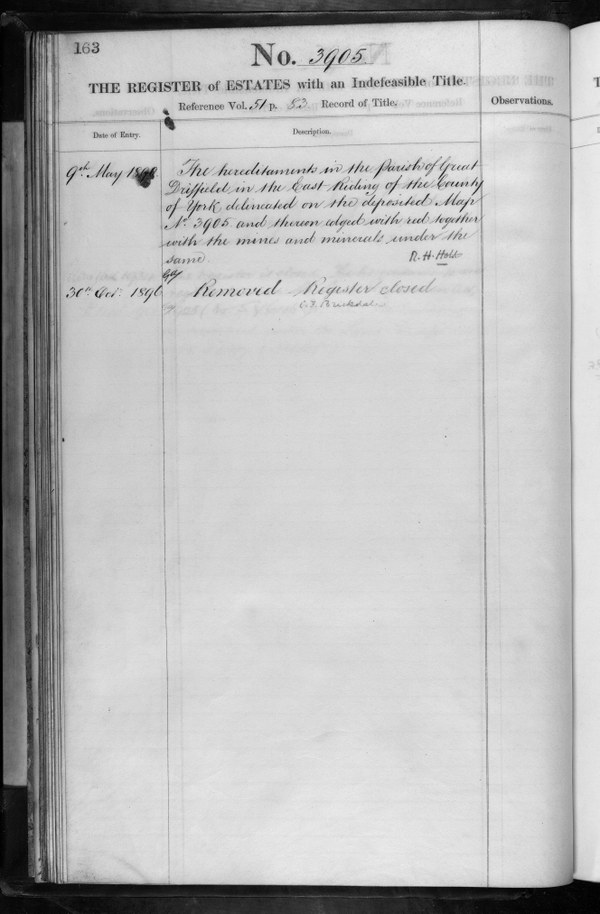 163
No. 3905
THE REGISTER of ESTATES with an Indefeasible Title.
Reference Vol. 51 p. 83 Record of Title.
Observations.
Date of Entry.
Description.
9th May
The hereditaments in the Parish of Great
Driffield in the East Riding of the County
of York delineated on the deposited Map
No. 3905 and thereon edged with red together
with the mines and minerals under the
same.
R. H. Holt
30th Oct. 1896 Removed Register closed